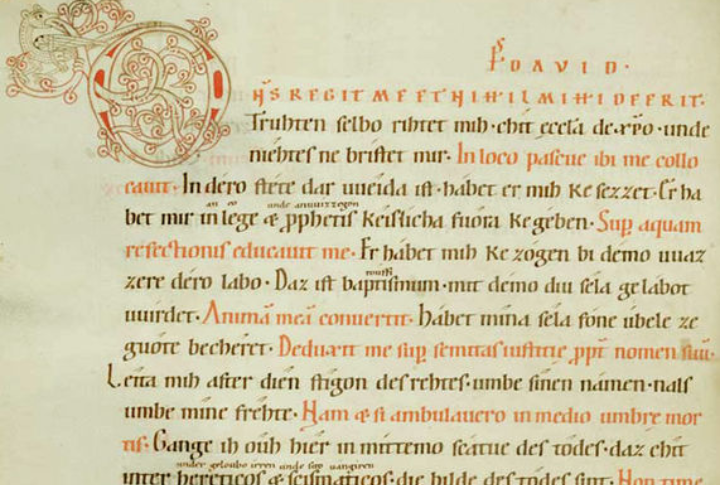 PS DAVID·
DÑS REGIT ME ET NIHIL MIHI DEERIT·
Truhten selbo rihtet mih·chit eccla de xpo·unde
niehtes ne bristet mir· In loco pascue ibi me collo
cauit· In dero stete dar uueida ist·habet er mih kesezzet· Er ha
an eo unde anuuizzegon
bet mir in lege & pphetis keislicha fuora kegeben· Sup aquam
refectionis educauit me· Er hábet mih kezógen bi démo uuaz
zere déro labo· Daz ist baptismum·mit démo diu sela gelábot
toufi
uuirdet· Animā meā conuertit· hábet mína séla fóne úbele ze
guóte bechéret· Deduxit me sup semitas iustitie ppt nomen suū·
Leita mih after dien stígon des rehtes·umbe sinen námen·nals
umbe mine frehte· Nam & si ambulauero in medio umbre mor
tis· Gange ih oúh hier in míttemo scátue des tôdes·daz chit
under geloubo irren unde sih uanginen
inter hereticos & scismaticos·die bilde des tôdes sint· Non time